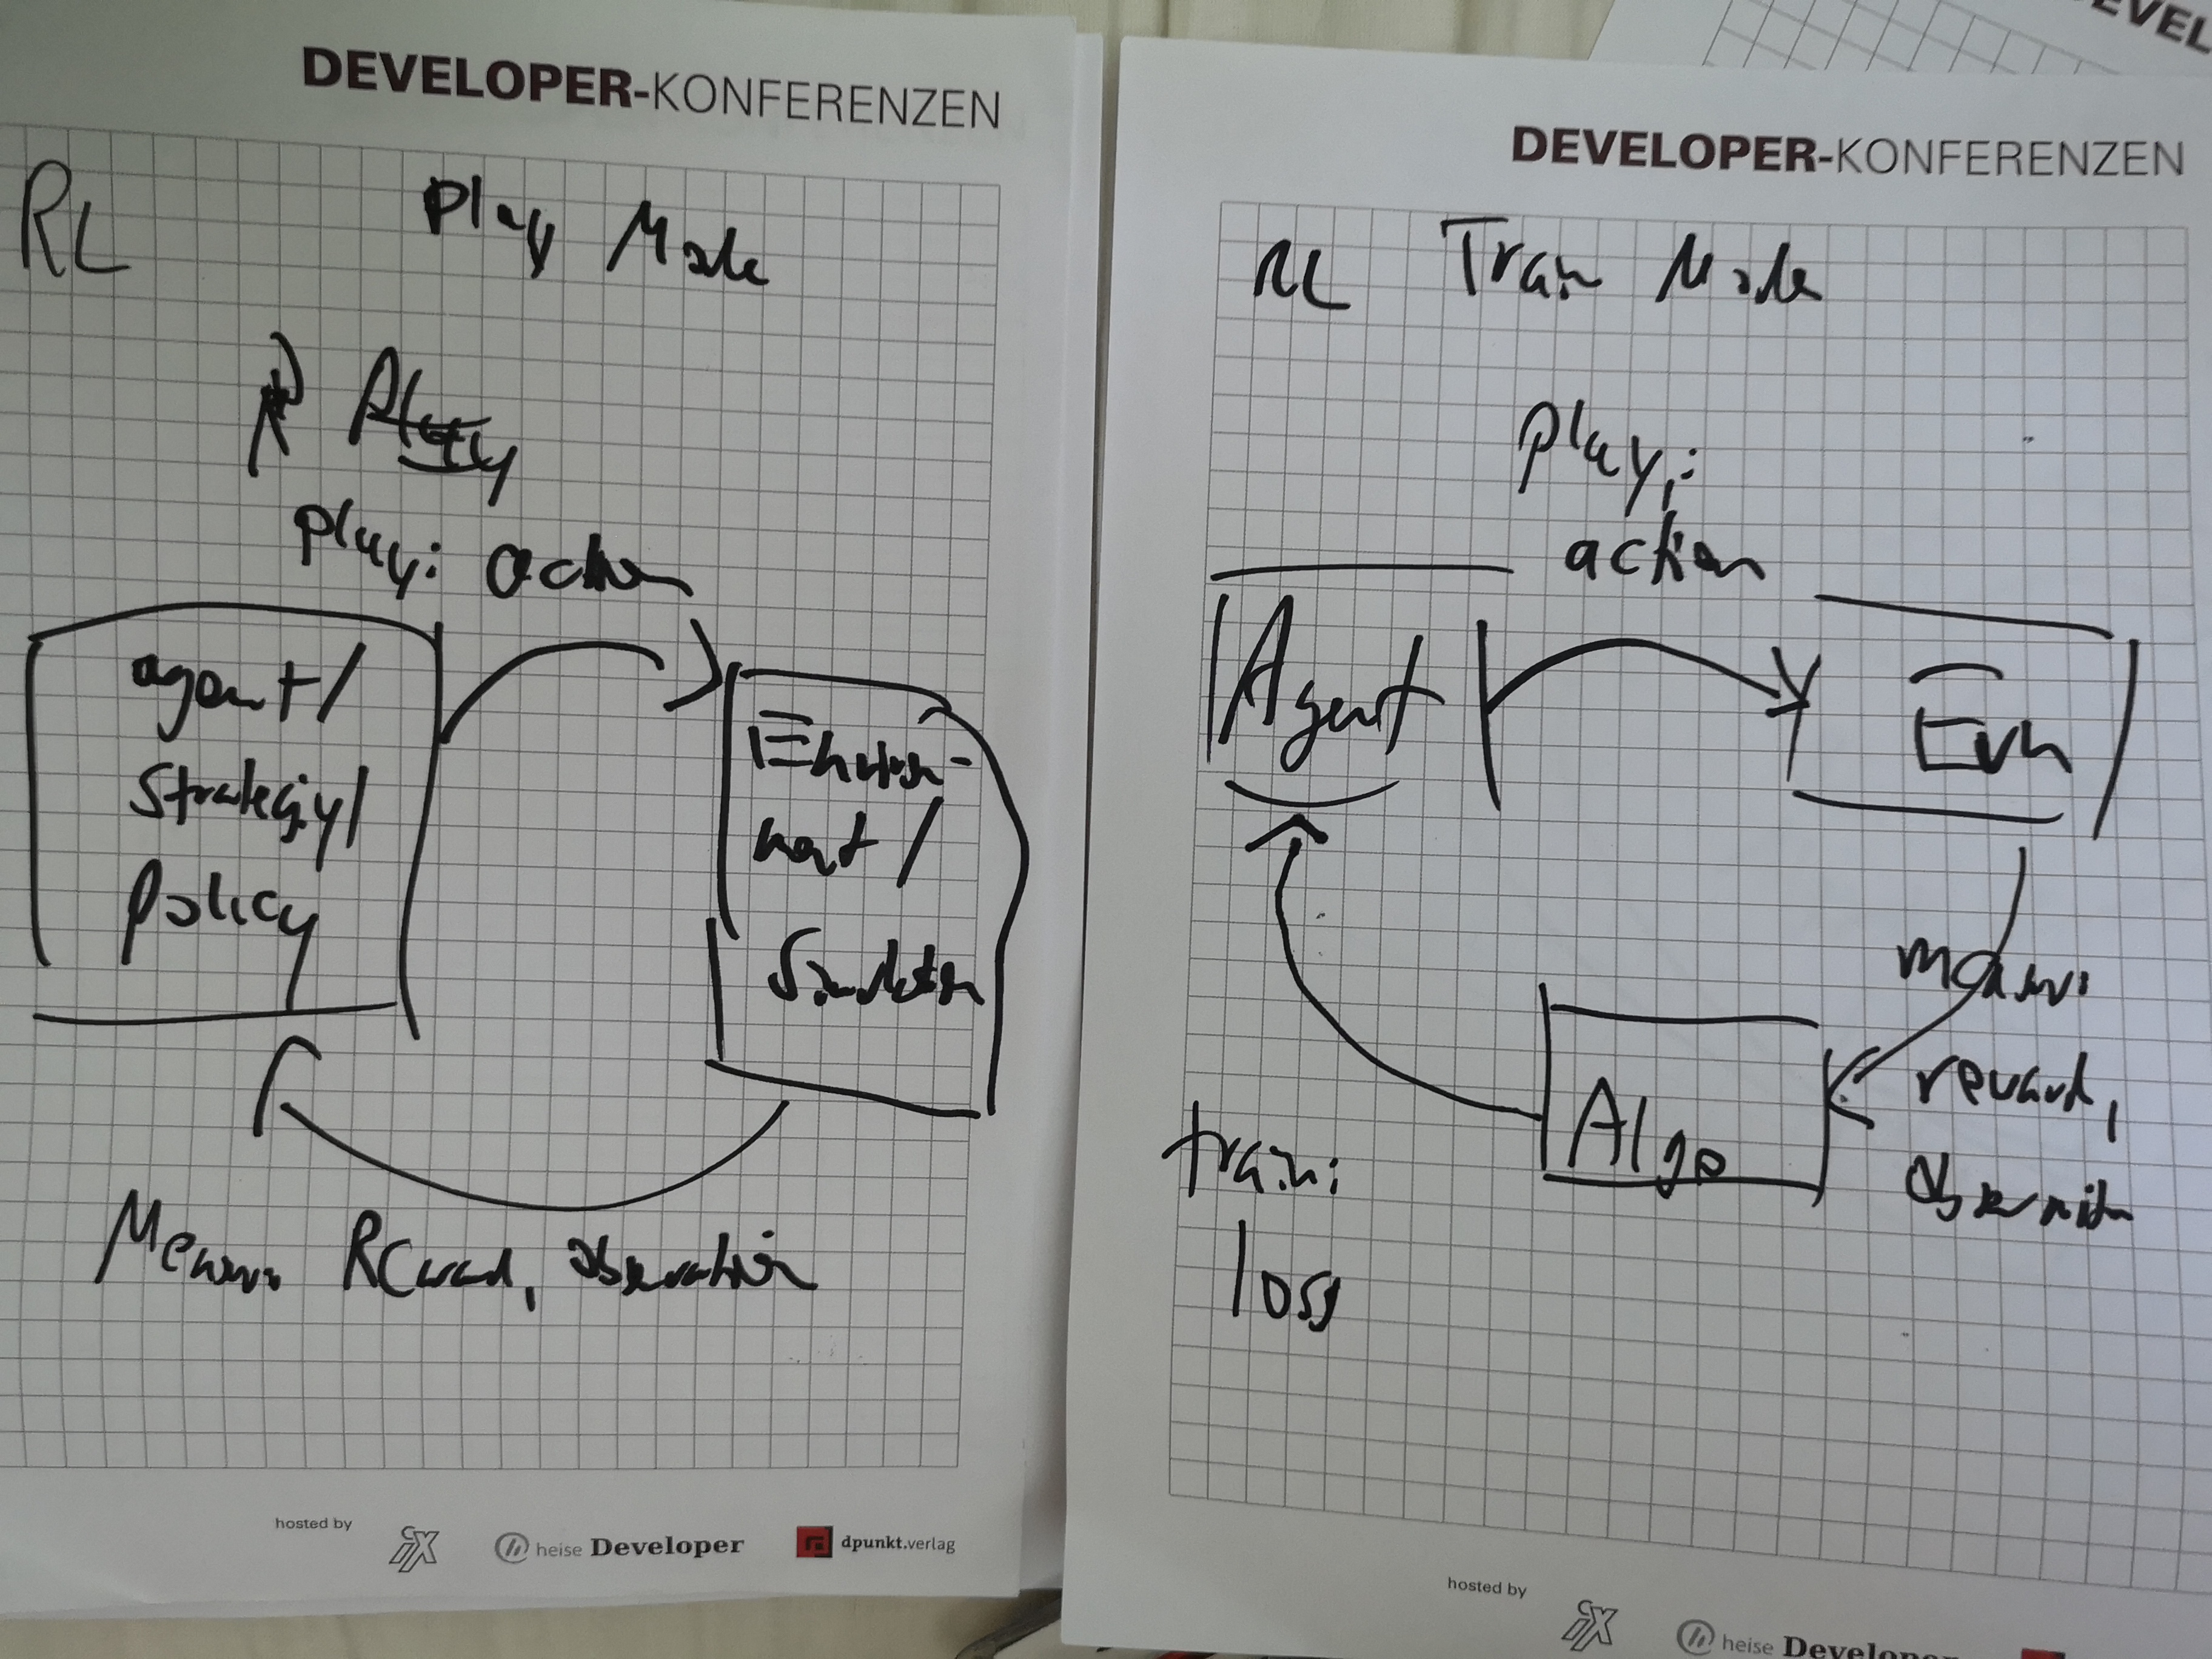 DEVELOPER-KONFERENZEN
RL Play Mode
play: action
agent /
Strategy/
policy
Environ-
ment /
Simulation
Measure: Reward, observation
hosted by
iX heise Developer dpunkt.verlag
DEVEL
DEVELOPER-KONFERENZEN
RL Train Mode
play:
action
Agent
Env
measure:
reward,
observation
Algo
train:
loss
hosted by
iX heise Developer